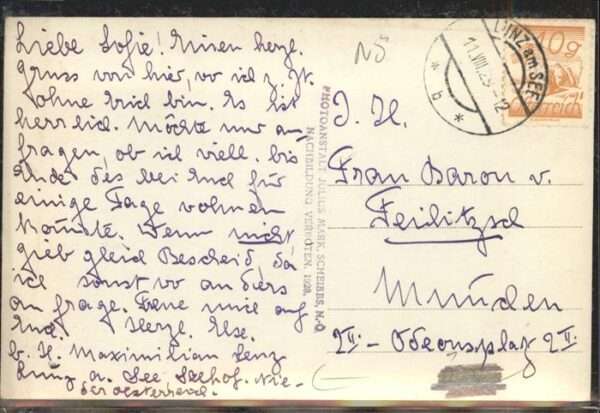 Liebe Sofie! Einen herzl.
Gruss von hier, wo ich z. Zt.
ohne Erich bin. Es ist
herrlich. Möchte nur an-
fragen, ob ich viell. bis
Ende des bei Euch für
einige Tage wohnen
könnte. Wenn nicht
gieb gleich Bescheid, da
ich sonst wo anders
an frage. Freue mich auf
Euch. Herzl. Else.
b. H. Maximilian Lenz
Lunz a. See, Seehof. Nie-
der oesterreich.
PHOTOANSTALT JULIUS MARK, SCHEIBBS, N.Ö.
NACHBILDUNG VERBOTEN. 1928.
NÖ
LUNZ am SEE
11.VIII.2
* b *
40g
I. H.
Frau Baron v.
Feilitzsch
München
Odeonsplatz 2 II.